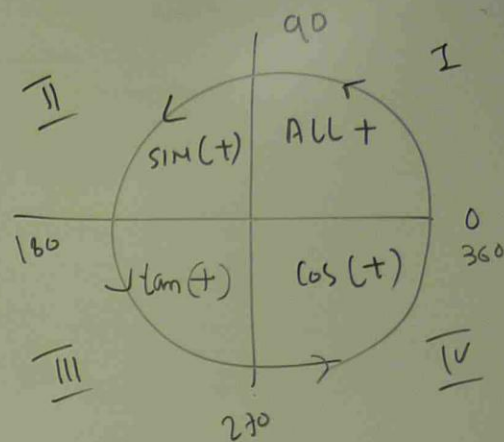 90
I
II
SIN(+)
ALL +
180
0
360
tan(+)
Cos(+)
III
IV
270